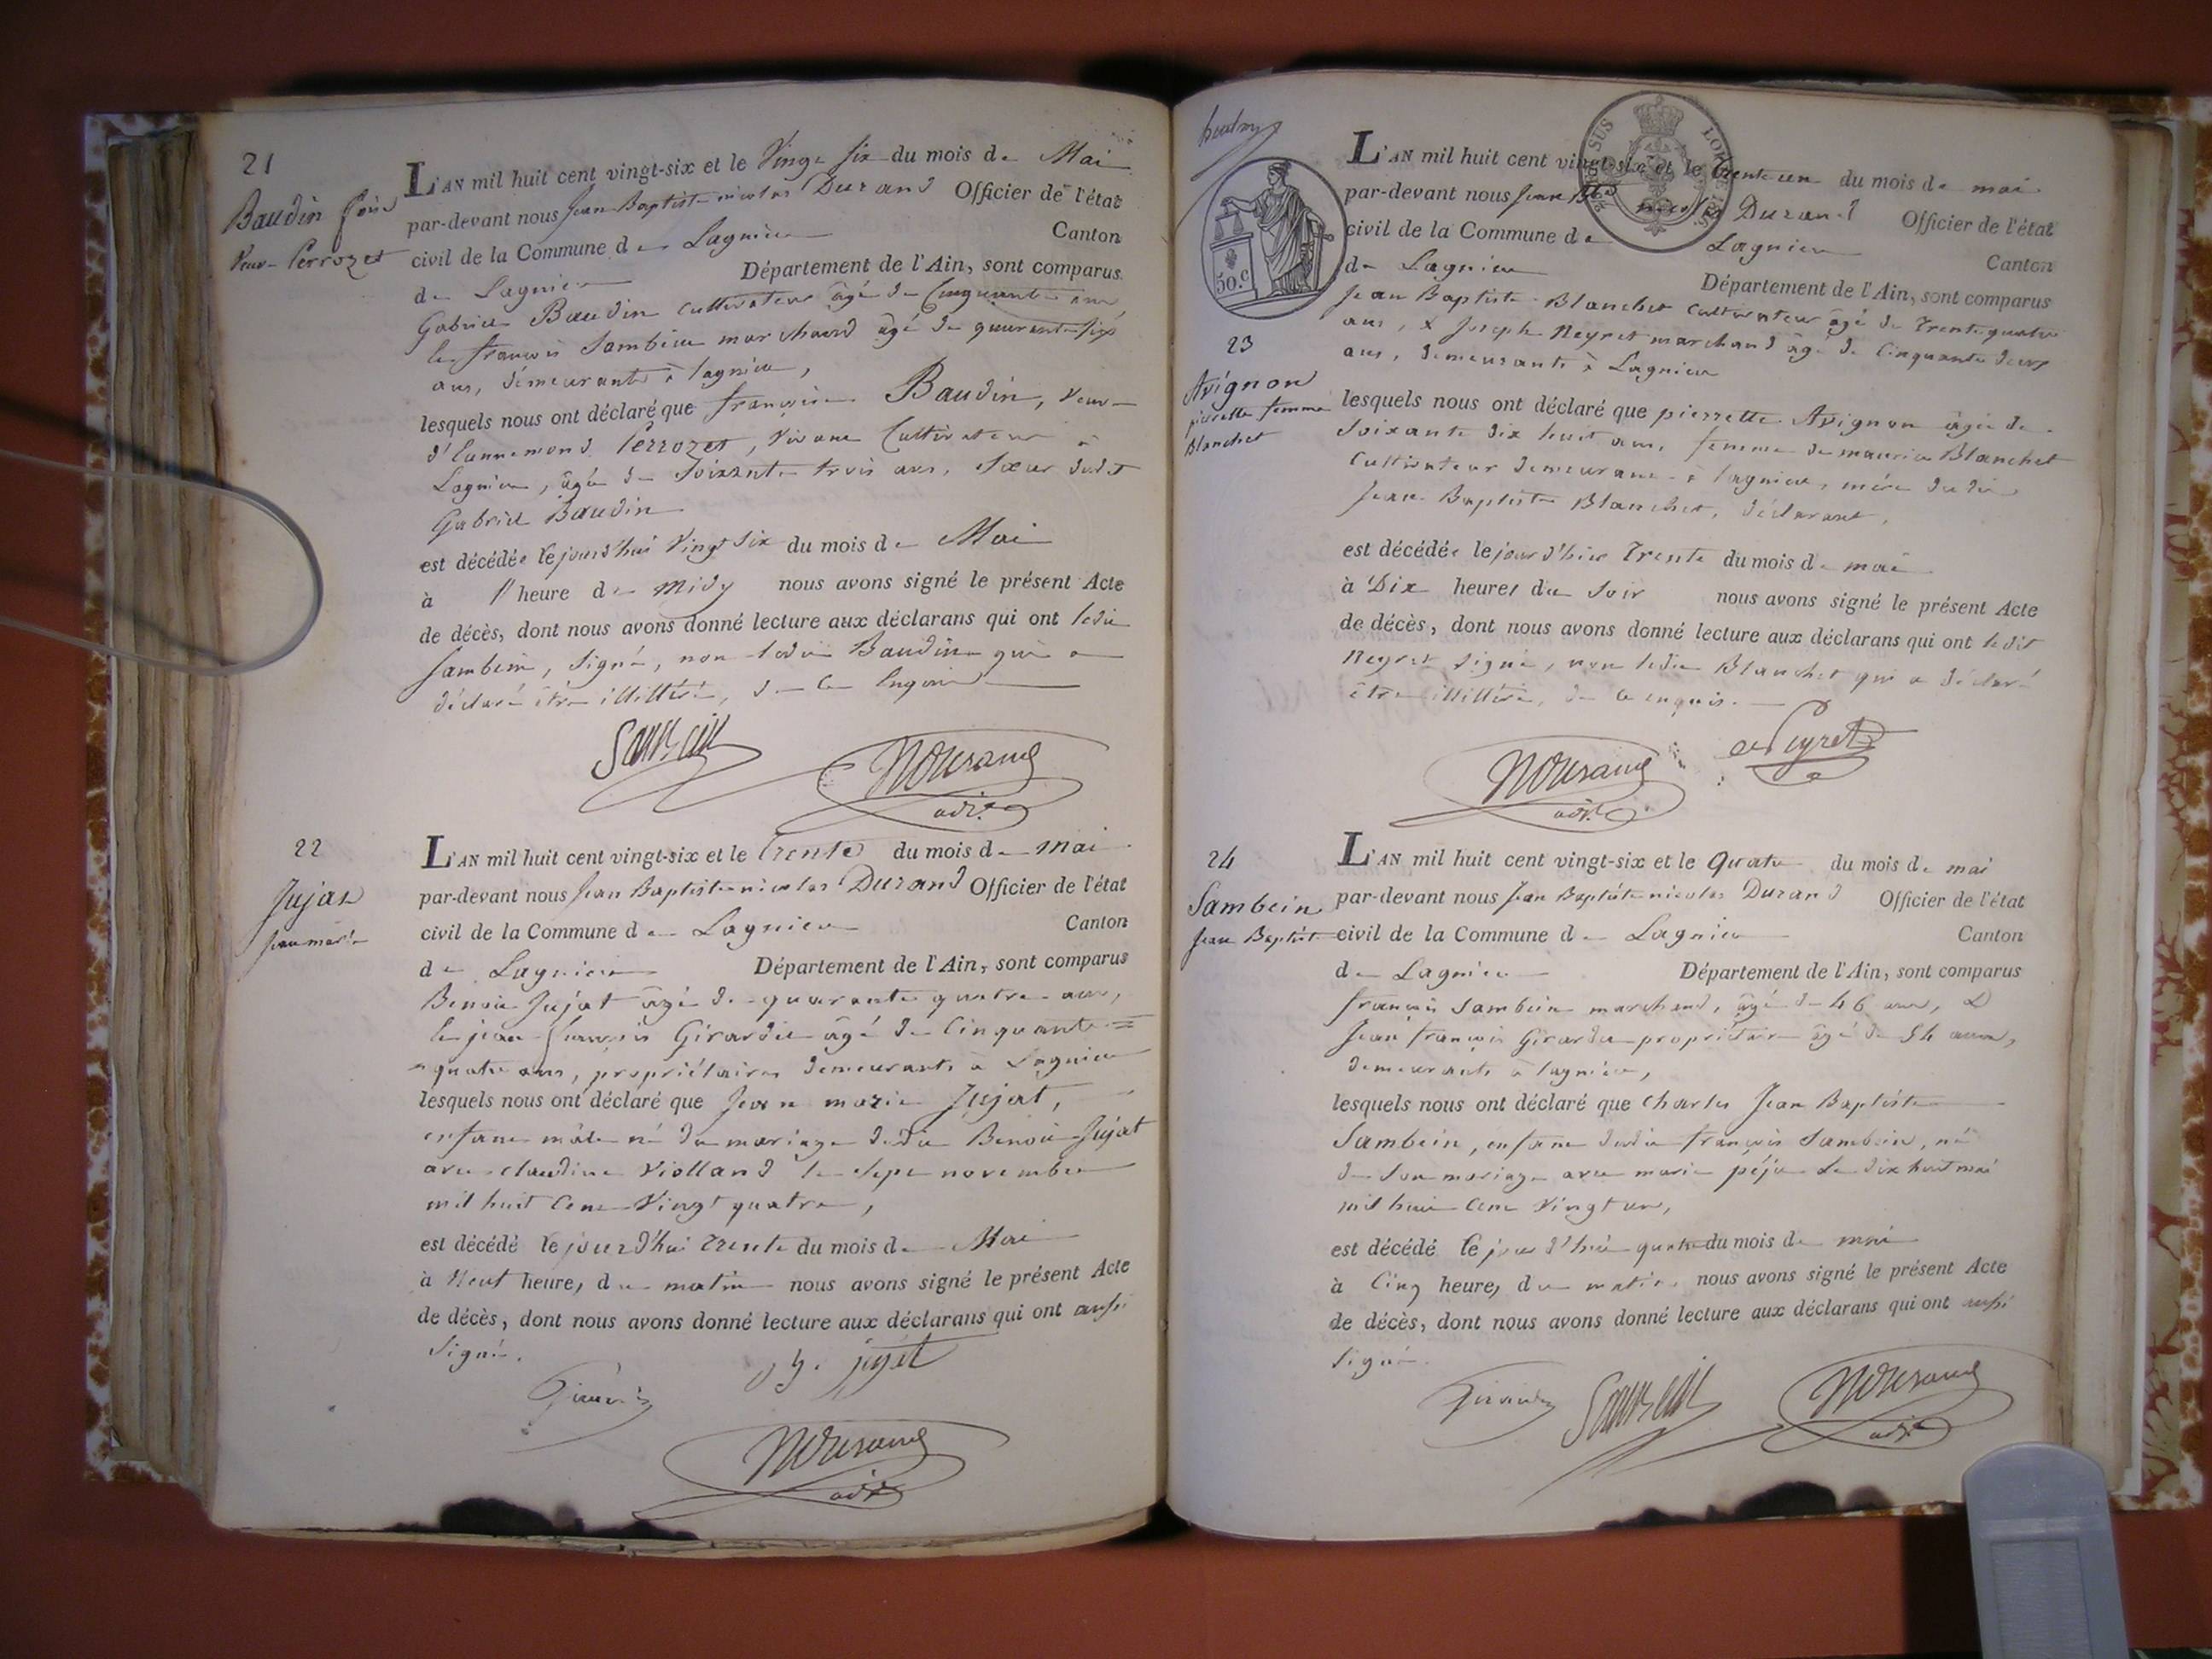 21
Baudin fçoise
Veuve Perrozet
L'AN mil huit cent vingt-six et le Vingt six du mois de Mai
par-devant nous Jean Baptiste nicolas Durand Officier de l'état
civil de la Commune de Lagnieu Canton
de Lagnieu Département de l'Ain, sont comparus
Gabriel Baudin cultivateur âgé de Cinquante ans
& françois Sambein marchand âgé de quarante six
ans, demeurants à lagnieu,
lesquels nous ont déclaré que françoise Baudin, veuve
Perrozet, vivant Cultivateur à
Lagnieu, âgée de Soixante trois ans, sœur dudit
Gabriel Baudin
est décédée le jourd'hui Vingt six du mois de Mai
à l'heure de midy nous avons signé le présent Acte
de décès, dont nous avons donné lecture aux déclarans qui ont ledit
Sambein, signé, non ledit Baudin qui a
déclaré être illittéré, de ce Enquis
Sambein
NDurand
adj.t
22
Jujat
jean marie
L'AN mil huit cent vingt-six et le trente du mois de mai
par-devant nous Jean Baptiste nicolas Durand Officier de l'état
civil de la Commune de Lagnieu Canton
de Lagnieu Département de l'Ain, sont comparus
Benoit Jujat âgé de quarante quatre ans,
& jean françois Girardin âgé de Cinquante =
= quatre ans, propriétaires demeurants à Lagnieu
lesquels nous ont déclaré que Jean marie Jujat,
enfant mâle né du mariage dudit Benoit Jujat
avec claudine Violland le sept novembre
mil huit Cent Vingt quatre,
est décédé le jourd'hui trente du mois de Mai
à Neuf heures du matin nous avons signé le présent Acte
de décès, dont nous avons donné lecture aux déclarans qui ont aussi
signé.
jujat
NDurand
adj.t
50.c
23
Avignon
pierrette femme
Blanchet
L'AN mil huit cent vingt-six et le trente un du mois de mai
par-devant nous Jean Bte nicolas Durand Officier de l'état
civil de la Commune de Lagnieu Canton
de Lagnieu Département de l'Ain, sont comparus
Jean Baptiste Blanchet cultivateur âgé de trente quatre
ans, & Joseph Neyret marchand âgé de Cinquante deux
ans, demeurants à Lagnieu
lesquels nous ont déclaré que pierrette Avignon âgée de
soixante dix huit ans, femme de maurice Blanchet
cultivateur demeurant à lagnieu, mère dudit
Jean Baptiste Blanchet, déclarant,
est décédée le jour d'hier Trente du mois de mai
à Dix heures du soir nous avons signé le présent Acte
de décès, dont nous avons donné lecture aux déclarans qui ont ledit
Neyret signé, non ledit Blanchet qui a déclaré
être illittéré, de ce enquis.
Neyret
NDurand
adj.t
24
Sambein
Jean Baptiste
L'AN mil huit cent vingt-six et le quatre du mois de mai
par-devant nous Jean Baptiste nicolas Durand Officier de l'état
civil de la Commune de Lagnieu Canton
de Lagnieu Département de l'Ain, sont comparus
françois Sambein marchand, âgé de 46 ans, &
Jean françois Girardin propriétaire âgé de 54 ans,
demeurants à lagnieu,
lesquels nous ont déclaré que Charles Jean Baptiste
Sambein, enfant dudit françois Sambein, né
de son mariage avec marie péju le dix huit mai
mil huit cent Vingt un,
est décédé le jour d'hui quatre du mois de mai
à Cinq heures du matin nous avons signé le présent Acte
de décès, dont nous avons donné lecture aux déclarans qui ont aussi
signé.
Girardin
Sambein
NDurand
adj.t